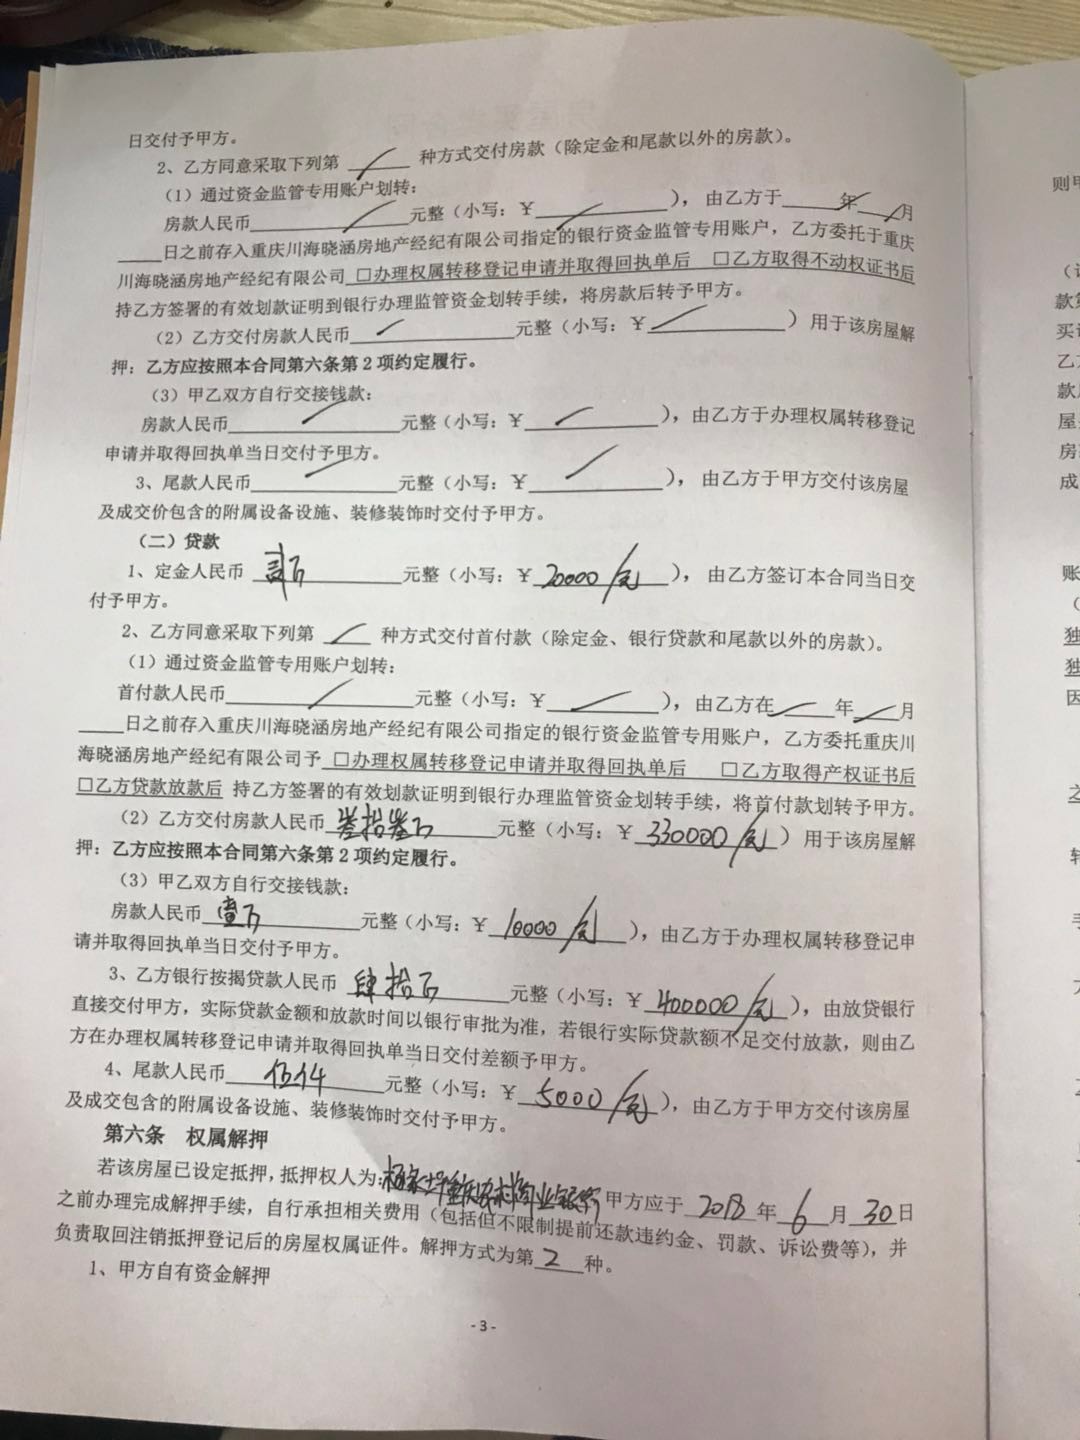 日交付予甲方。
2、乙方同意采取下列第 / 种方式交付房款（除定金和尾款以外的房款）。
（1）通过资金监管专用账户划转：
房款人民币 / 元整（小写：¥ / ），由乙方于 年 / 月
日之前存入重庆川海晓涵房地产经纪有限公司指定的银行资金监管专用账户，乙方委托于重庆
川海晓涵房地产经纪有限公司 □办理权属转移登记申请并取得回执单后 □乙方取得不动权证书后
持乙方签署的有效划款证明到银行办理监管资金划转手续，将房款后转予甲方。
（2）乙方交付房款人民币 / 元整（小写：¥ / ）用于该房屋解
押：乙方应按照本合同第六条第2项约定履行。
（3）甲乙双方自行交接钱款：
房款人民币 / 元整（小写：¥ / ），由乙方于办理权属转移登记
申请并取得回执单当日交付予甲方。
3、尾款人民币 / 元整（小写：¥ / ），由乙方于甲方交付该房屋
及成交价包含的附属设备设施、装修装饰时交付予甲方。
（二）贷款
1、定金人民币 贰万 元整（小写：¥ 20000/元 ），由乙方签订本合同当日交
付予甲方。
2、乙方同意采取下列第 / 种方式交付首付款（除定金、银行贷款和尾款以外的房款）。
（1）通过资金监管专用账户划转：
首付款人民币 / 元整（小写：¥ / ），由乙方在 / 年 / 月
日之前存入重庆川海晓涵房地产经纪有限公司指定的银行资金监管专用账户，乙方委托重庆川
海晓涵房地产经纪有限公司予 □办理权属转移登记申请并取得回执单后 □乙方取得产权证书后
□乙方贷款放款后 持乙方签署的有效划款证明到银行办理监管资金划转手续，将首付款划转予甲方。
（2）乙方交付房款人民币 叁拾叁万 元整（小写：¥ 330000/元 ）用于该房屋解
押：乙方应按照本合同第六条第2项约定履行。
（3）甲乙双方自行交接钱款：
房款人民币 壹万 元整（小写：¥ 10000/元 ），由乙方于办理权属转移登记申
请并取得回执单当日交付予甲方。
3、乙方银行按揭贷款人民币 肆拾万 元整（小写：¥ 400000/元 ），由放贷银行
直接交付甲方，实际贷款金额和放款时间以银行审批为准，若银行实际贷款额不足交付放款，则由乙
方在办理权属转移登记申请并取得回执单当日交付差额予甲方。
4、尾款人民币 伍仟 元整（小写：¥ 5000/元 ），由乙方于甲方交付该房屋
及成交包含的附属设备设施、装修装饰时交付予甲方。
第六条 权属解押
若该房屋已设定抵押，抵押权人为：杨家坪重庆农村商业银行 甲方应于 2018 年 6 月 30 日
之前办理完成解押手续，自行承担相关费用（包括但不限制提前还款违约金、罚款、诉讼费等），并
负责取回注销抵押登记后的房屋权属证件。解押方式为第 2 种。
1、甲方自有资金解押
- 3 -
则
款
买
乙
款
屋
房
成
账
独
独
因
之